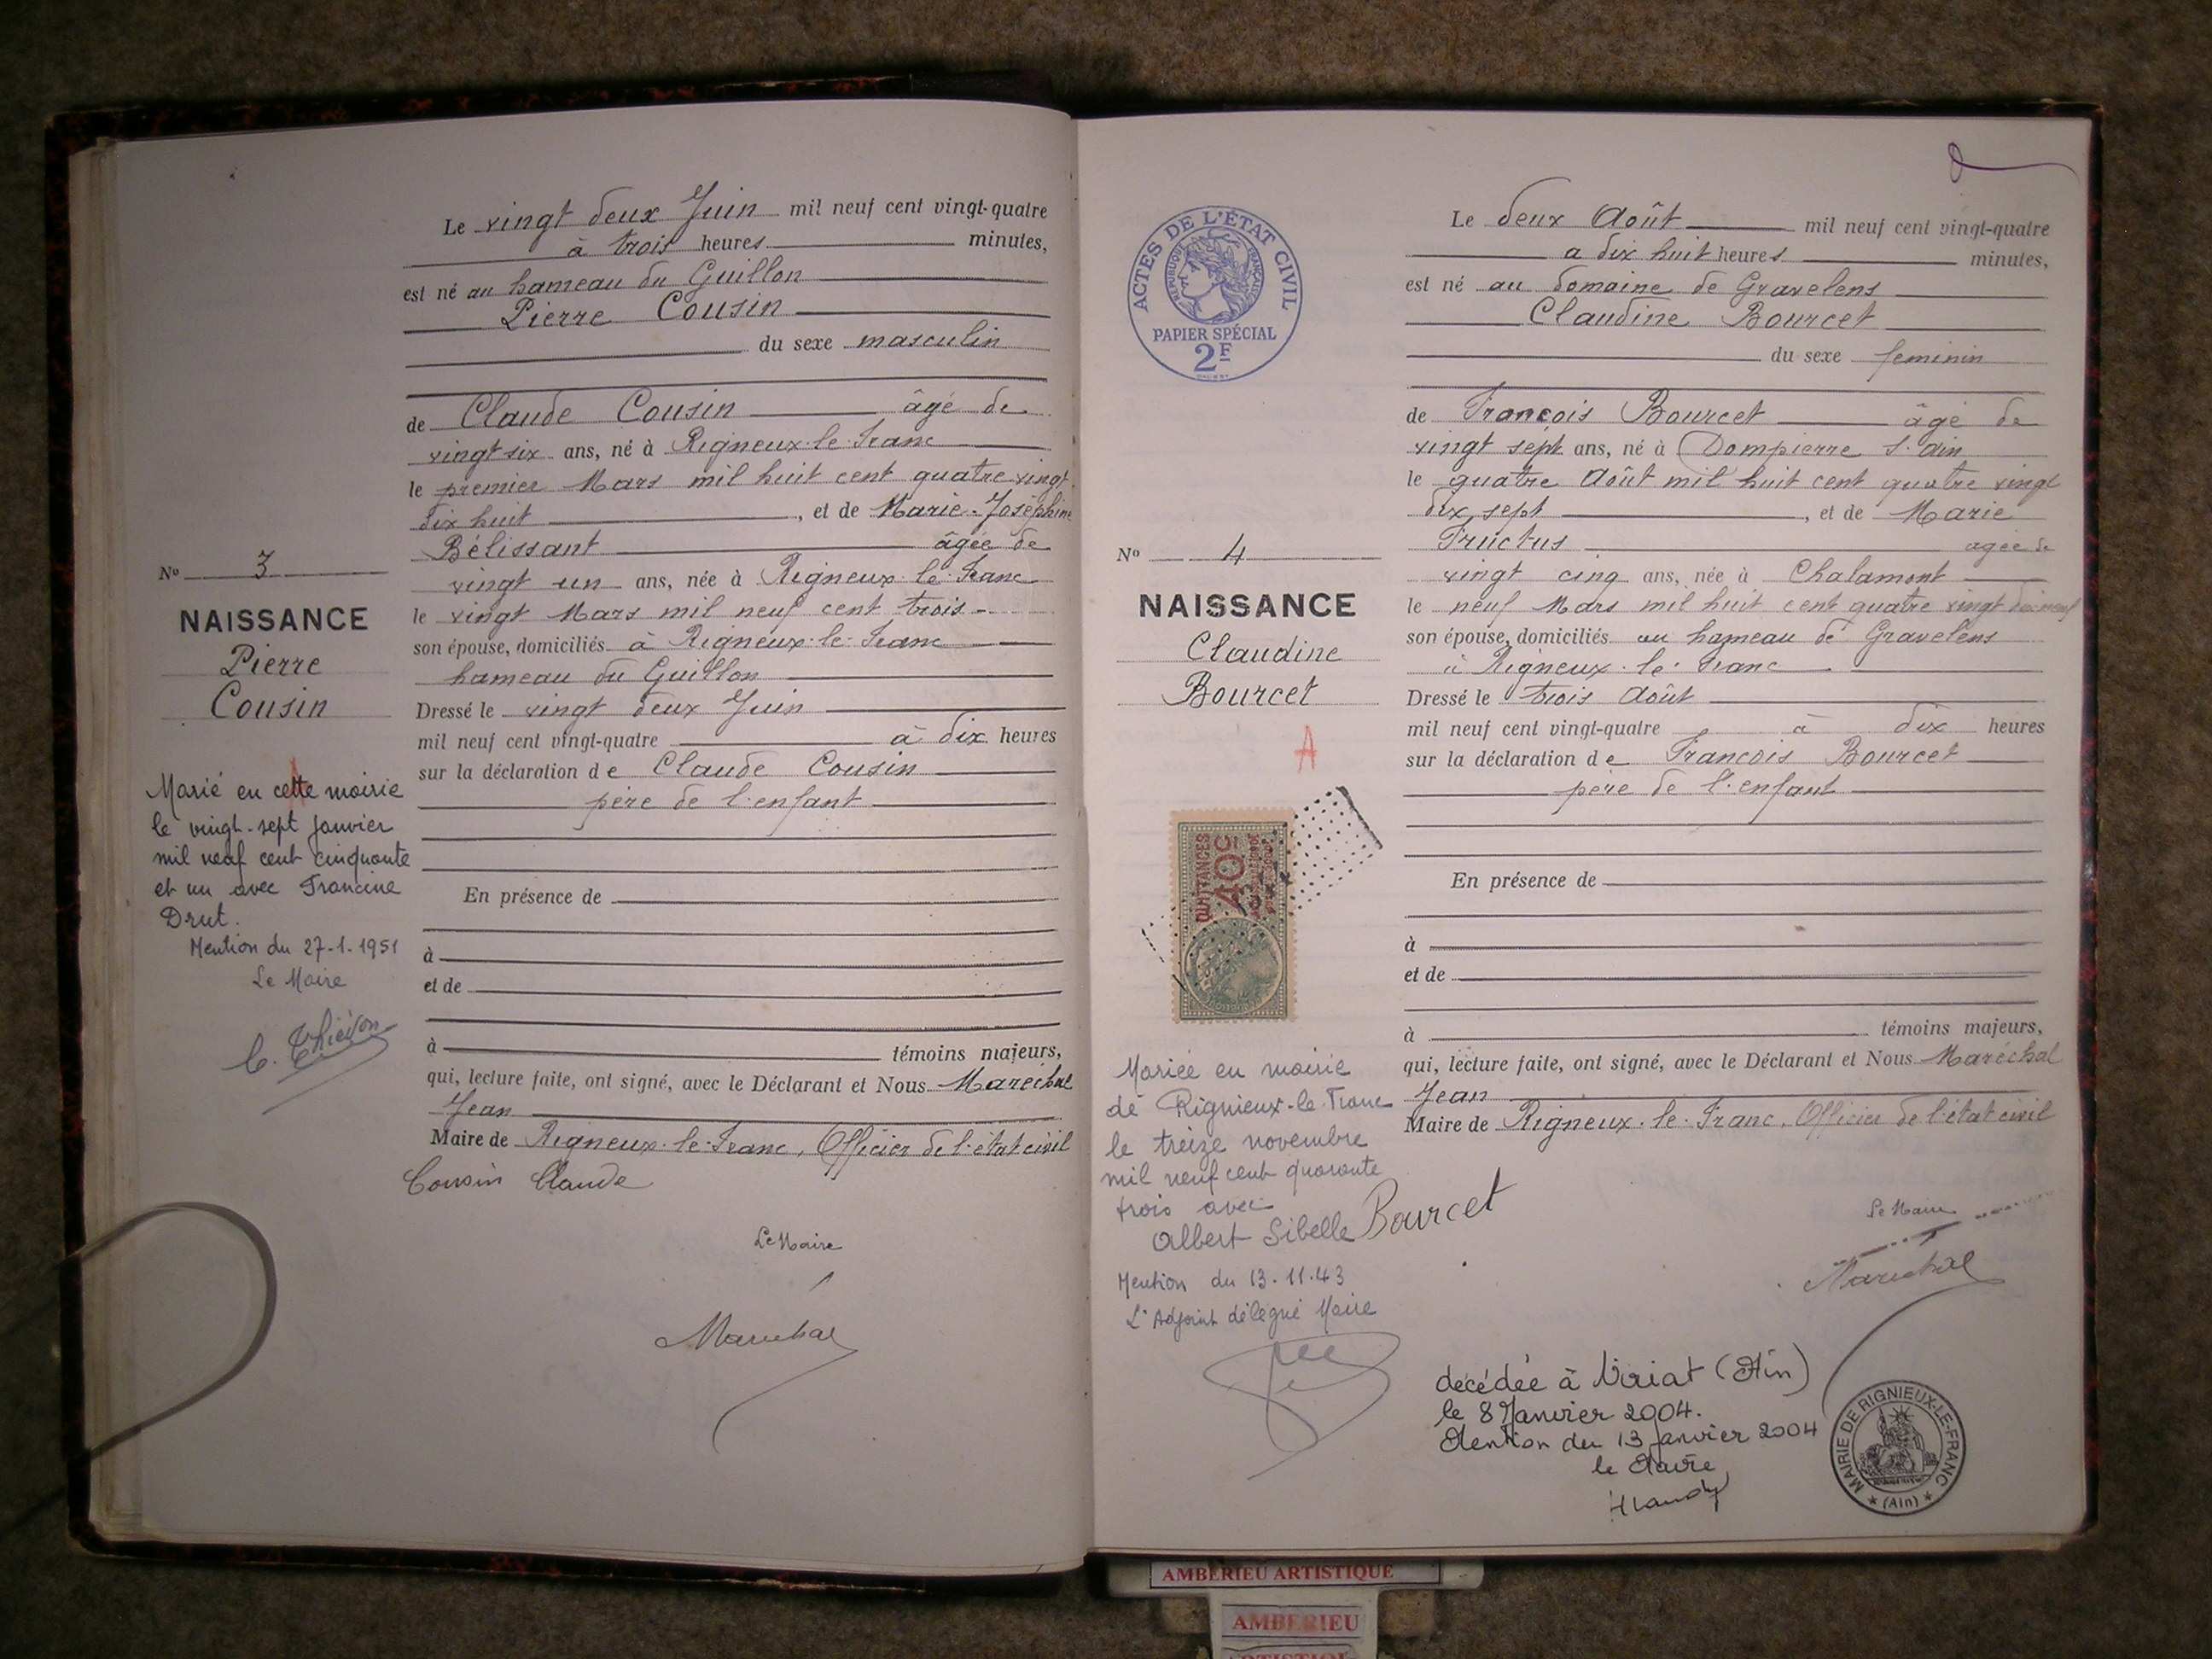 Le vingt deux Juin mil neuf cent vingt-quatre
à trois heures minutes,
est né au hameau du Guillon
Pierre Cousin
du sexe masculin
de Claude Cousin âgé de
vingt six ans, né à Rigneux-le-Franc
le premier Mars mil huit cent quatre vingt
dix huit, et de Marie-Joséphine
Bélissant âgée de
vingt un ans, née à Rigneux-le-Franc
le vingt Mars mil neuf cent trois
son épouse, domiciliés à Rigneux-le-Franc
hameau du Guillon
Dressé le vingt deux Juin
mil neuf cent vingt-quatre à dix heures
sur la déclaration de Claude Cousin
père de l'enfant
En présence de
à
et de
à témoins majeurs,
qui, lecture faite, ont signé, avec le Déclarant et Nous Maréchal
Jean
Maire de Rigneux-le-Franc, Officier de l'état civil
Cousin Claude
Le Maire
Maréchal
No 3
NAISSANCE
Pierre
Cousin
A
Marié en cette mairie
le vingt-sept janvier
mil neuf cent cinquante
et un avec Francine
Drut.
Mention du 27-1-1951
Le Maire
ACTES DE L'ÉTAT CIVIL
RÉPUBLIQUE FRANÇAISE
PAPIER SPÉCIAL
2F
No 4
NAISSANCE
Claudine
Bourcet
A
QUITTANCES
40c
Mariée en mairie
de Rignieux-le-Franc
le treize novembre
mil neuf cent quarante
trois avec
Albert Sibelle
Mention du 13.11.43
L'Adjoint délégué Maire
Le deux Août mil neuf cent vingt-quatre
a dix huit heures minutes,
est né au domaine de Gravelens
Claudine Bourcet
du sexe feminin
de François Bourcet âgé de
vingt sept ans, né à Dompierre s. ain
le quatre Août mil huit cent quatre vingt
dix sept, et de Marie
Fructus agée de
vingt cinq ans, née à Chalamont
le neuf Mars mil huit cent quatre vingt dix neuf
son épouse, domiciliés au hameau de Gravelens
à Rigneux-le-Franc
Dressé le trois Août
mil neuf cent vingt-quatre à dix heures
sur la déclaration de François Bourcet
père de l'enfant
En présence de
à
et de
à témoins majeurs,
qui, lecture faite, ont signé, avec le Déclarant et Nous Maréchal
Jean
Maire de Rigneux-le-Franc, Officier de l'état civil
Bourcet
Le Maire
Maréchal
décédée à Viriat (Ain)
le 8 Janvier 2004.
Mention du 13 janvier 2004
le Maire
MAIRIE DE RIGNIEUX-LE-FRANC
(Ain)
AMBERIEU ARTISTIQUE
AMBERIEU
ARTISTIQUE